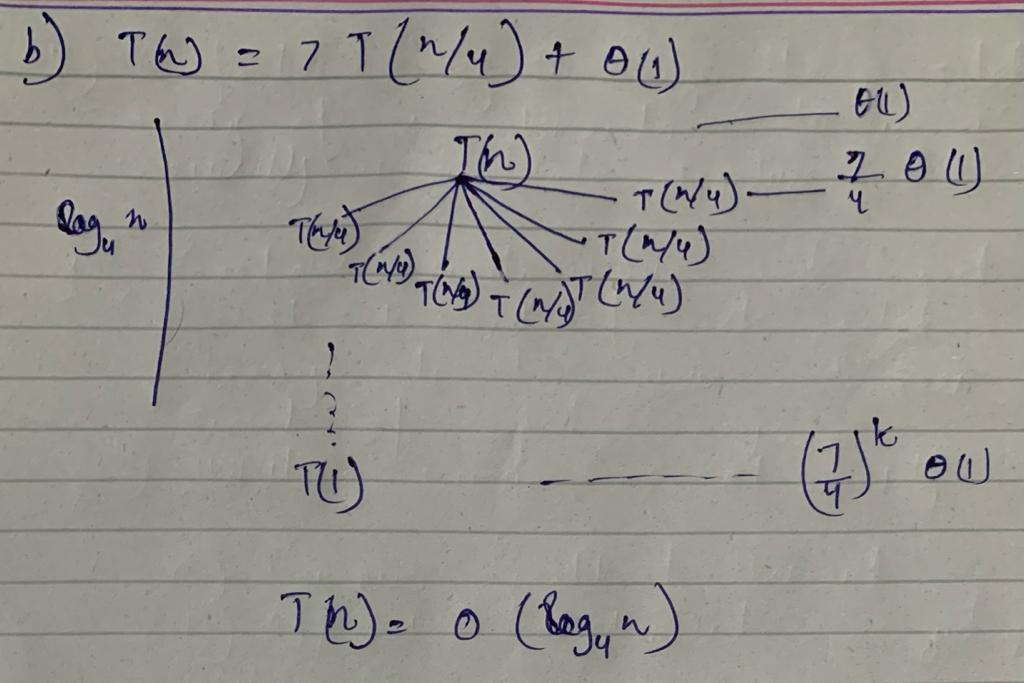 b) T(n) = 7 T(n/4) + θ(1)
θ(1)
T(n)
T(n/4) 7/4 θ(1)
log₄ n
T(n/4) T(n/4)
T(n/4) T(n/4) T(n/4) T(n/4)
T(1) (7/4)^k θ(1)
T(n) = θ (log₄ n)